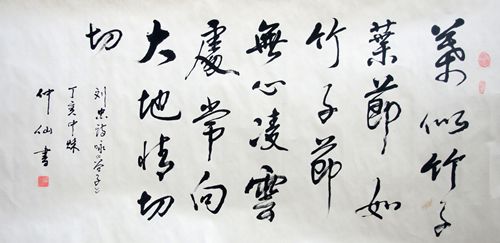 葉似竹子
葉節如
竹子節
無心凌雲
處常向
大地情切
切
刘忠诗咏谷子
丁亥中秋
仲仙書